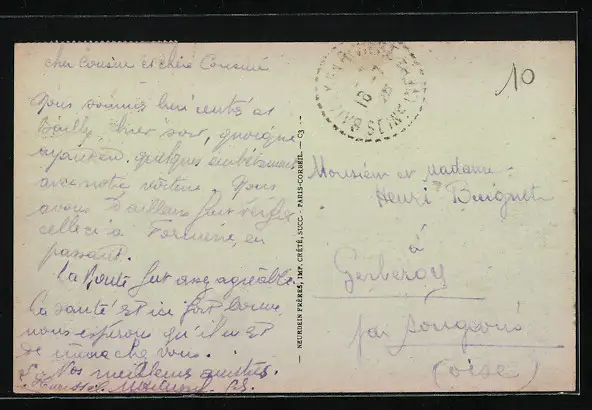 cher Cousin et chère Cousine
Nous sommes bien rentrés at
Bailly, hier soir, quoique
ayant eu quelques embêtements
avec notre voiture. Nous
avons d'ailleurs fait
celle ci à Formerie, en
passant.
La Route fut assez agréable
La santé est ici fort bonne,
nous espérons qu'il en est
de même chez vous.
Nos meilleures amitiés.
NEURDEIN FRÈRES, IMP. CRÉTÉ, SUCC. - PARIS-CORBEIL. - C3
SEINE
16
10
Monsieur et Madame
Henri Buignet
à
Gerberoy
par Songeons
(Oise)